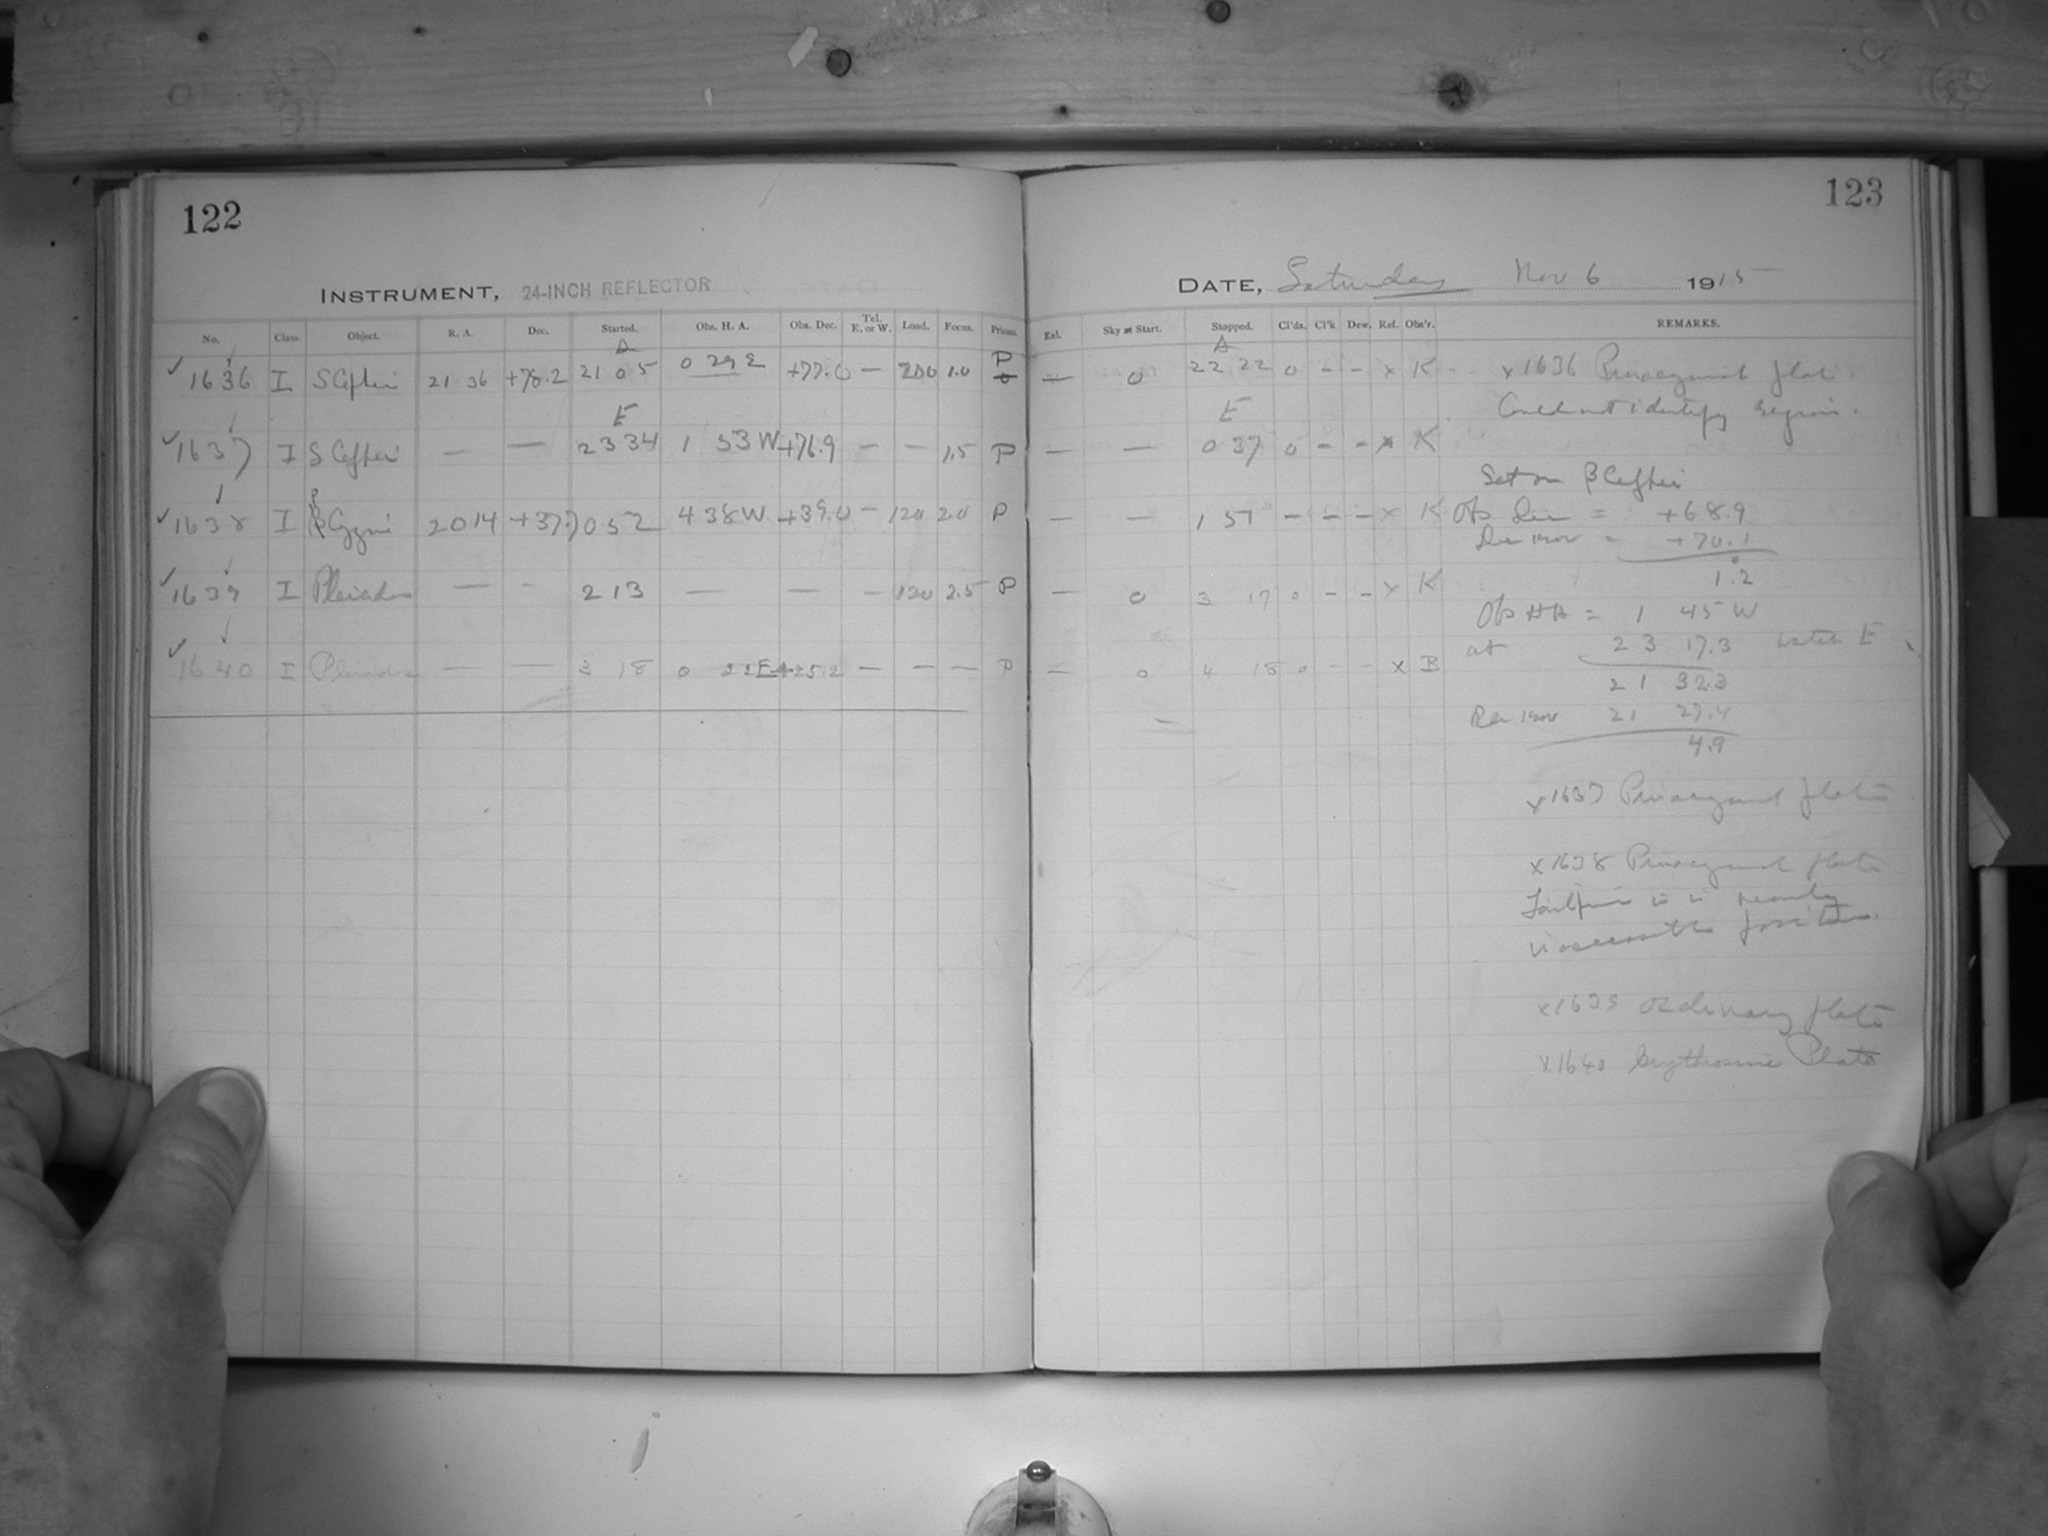 122
INSTRUMENT, 24-INCH REFLECTOR
No. Class. Object. R. A. Dec. Started. Obs. H. A. Obs. Dec. Tel. E. or W. Load. Focus. Prisms.
A
1636 I S Cephei 21 36 +78.2 21 05 0 29 E +77.0 — 200 1.0 P
E
1637 I S Cephei — — 23 34 1 53 W +76.9 — — 1.5 P
1638 I P Cygni 20 14 +37.7 0 52 4 38 W +39.0 — 120 2.0 P
1639 I Pleiades — - 2 13 — — — 120 2.5 P
1640 I Pleiades — — 3 18 0 22 E +25.2 — — — P
123
DATE, Saturday Nov 6 1915
Exl. Sky at Start. Stopped. Cl'ds. Cl'k. Dew. Ref. Obs'r. REMARKS.
A
— 0 22 22 0 - - x K x1636 plate
Could not identify region.
E
— — 0 37 0 - - x K
Set on β Cephei
— — 1 57 - - - x K Obs Dec = +68.9
Dec 1900 = +70.1
1.2
— 0 3 17 0 - - x K
Obs HA = 1 45 W
at 23 17.3 watch E
— 0 4 18 0 - - x B
21 32.3
21 27.4
4.9
x1637 plate
x1638 plate
in nearly
inaccessible position.
x1639 Ordinary plate
x1640 Erythrosine Plate